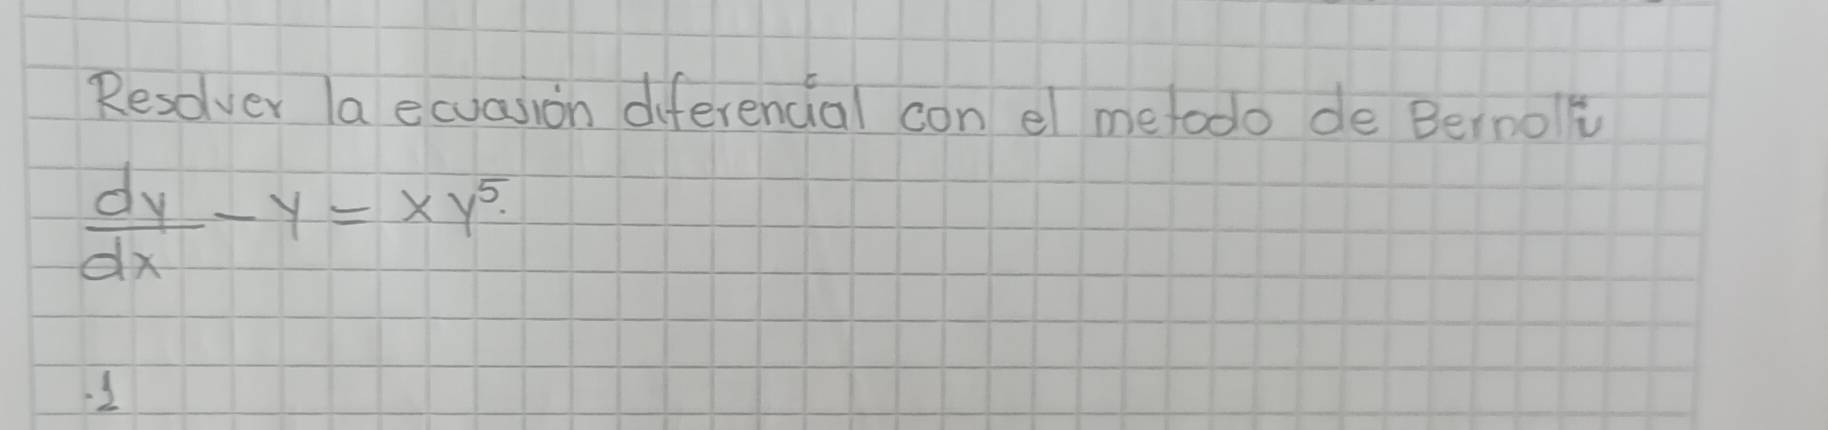 Resolver la ecuasión diferencial con el metodo de Bernolli
dy/dx - y = xy⁵.
.1